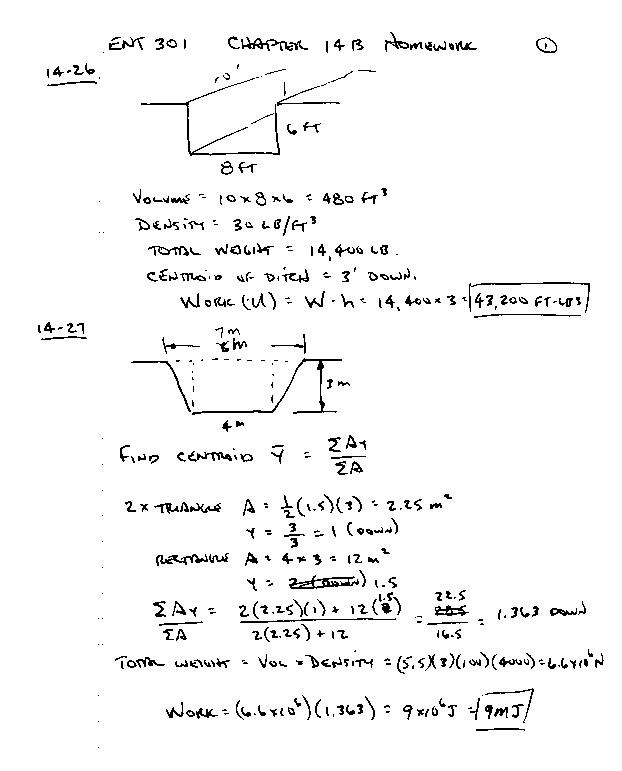 ENT 301 CHAPTER 14B HOMEWORK 1
14-26
10'
6 FT
8 FT
VOLUME = 10 x 8 x 6 = 480 FT³
DENSITY = 30 LB/FT³
TOTAL WEIGHT = 14,400 LB.
CENTROID OF DITCH = 3' DOWN.
WORK (U) = W·h = 14,400 x 3 = 43,200 FT-LBS
14-27
7m
3 m
4 m
FIND CENTROID ȳ = ΣAy / ΣA
2 x TRIANGLE A = ½(1.5)(3) = 2.25 m²
Y = 3/3 = 1 (DOWN)
RECTANGLE A = 4 x 3 = 12 m²
Y = 1.5
ΣAy / ΣA = 2(2.25)(1) + 12(1.5) / 2(2.25) + 12 = 22.5 / 16.5 = 1.363 DOWN
TOTAL WEIGHT = VOL x DENSITY = (5.5)(3)(100)(4000) = 6.6x10⁶N
WORK = (6.6x10⁶)(1.363) = 9x10⁶J = 9MJ